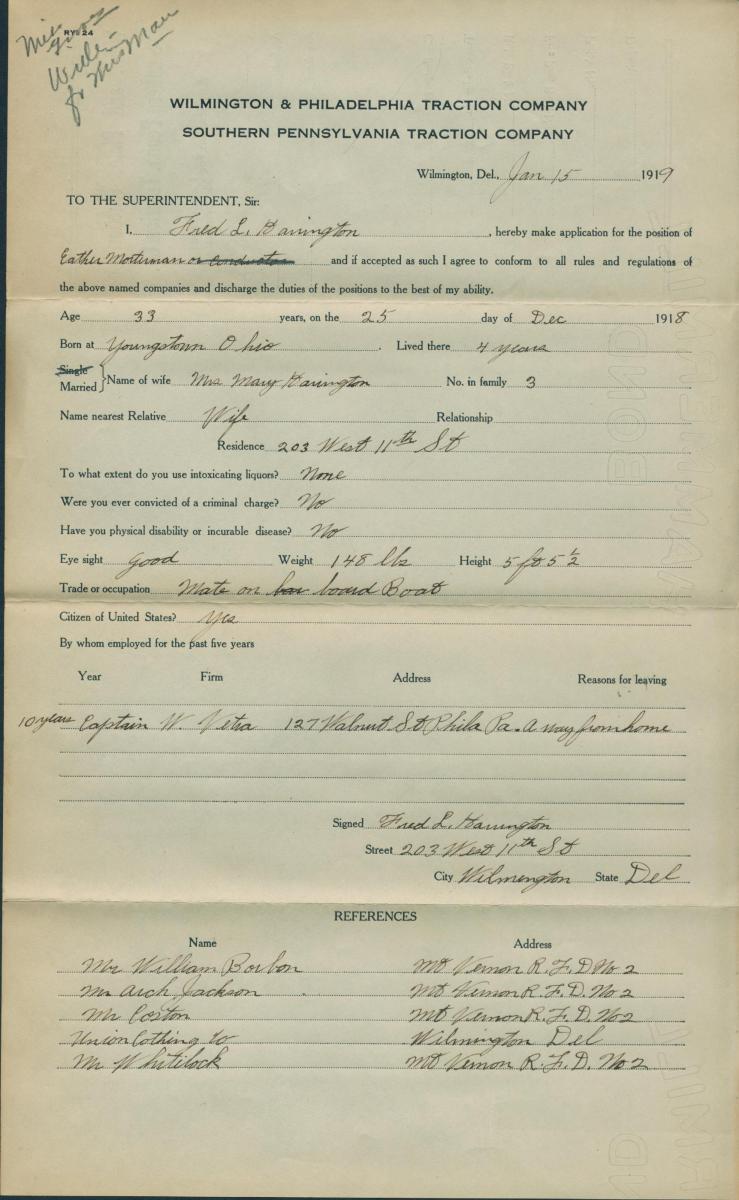 RY-24
WILMINGTON & PHILADELPHIA TRACTION COMPANY
SOUTHERN PENNSYLVANIA TRACTION COMPANY
Wilmington, Del., Jan 15 1919
TO THE SUPERINTENDENT, Sir:
I, Fred L. Harrington, hereby make application for the position of
Eather Moterman or conductor and if accepted as such I agree to conform to all rules and regulations of
the above named companies and discharge the duties of the positions to the best of my ability.
Age 33 years, on the 25 day of Dec 1918
Born at Youngstown Ohio. Lived there 4 years
Single
Married } Name of wife Mrs Mary Harington No. in family 3
Name nearest Relative Wife Relationship
Residence 203 West 11th St
To what extent do you use intoxicating liquors? None
Were you ever convicted of a criminal charge? No
Have you physical disability or incurable disease? No
Eye sight good Weight 148 lbs Height 5 ft 5 1/2
Trade or occupation Mate on bar board Boat
Citizen of United States? Yes
By whom employed for the past five years
Year Firm Address Reasons for leaving
10 years Captain W. Vetra 127 Walnut St Phila Pa. A way from home
Signed Fred L. Harrington
Street 203 West 11th St
City Wilmengton State Del
REFERENCES
Name Address
Mr William Borbon Mt Vernon R. F. D No 2
Mr Arch Jackson Mt Vernon R. F. D. No 2
Mr Coston Mt Vernon R. F. D. No 2
Union Cothing Co Wilmington Del
Mr Whitelock Mt Vernon R. F. D. No 2